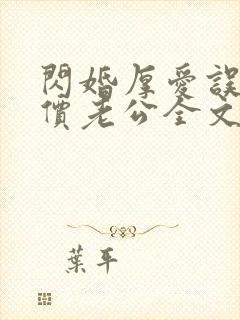 閃婚厚愛誤
價老公全文
葉平